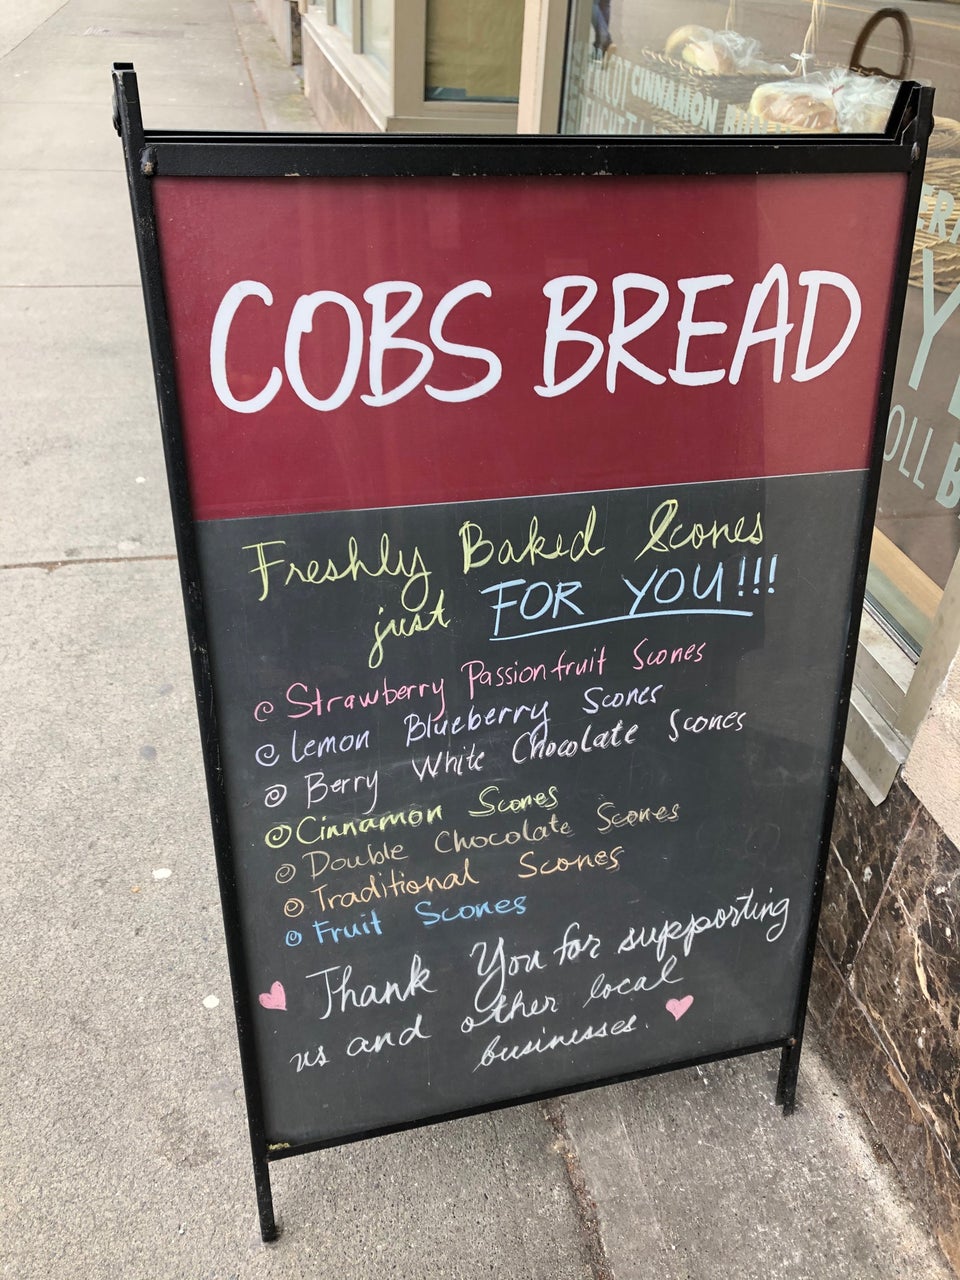 COBS BREAD
Freshly Baked Scones
just FOR YOU!!!
Strawberry Passionfruit Scones
Lemon Blueberry Scones
Berry White Chocolate Scones
Cinnamon Scones
Double Chocolate Scones
Traditional Scones
Fruit Scones
Thank You for supporting
us and other local
businesses.
CINNAMON
OLL